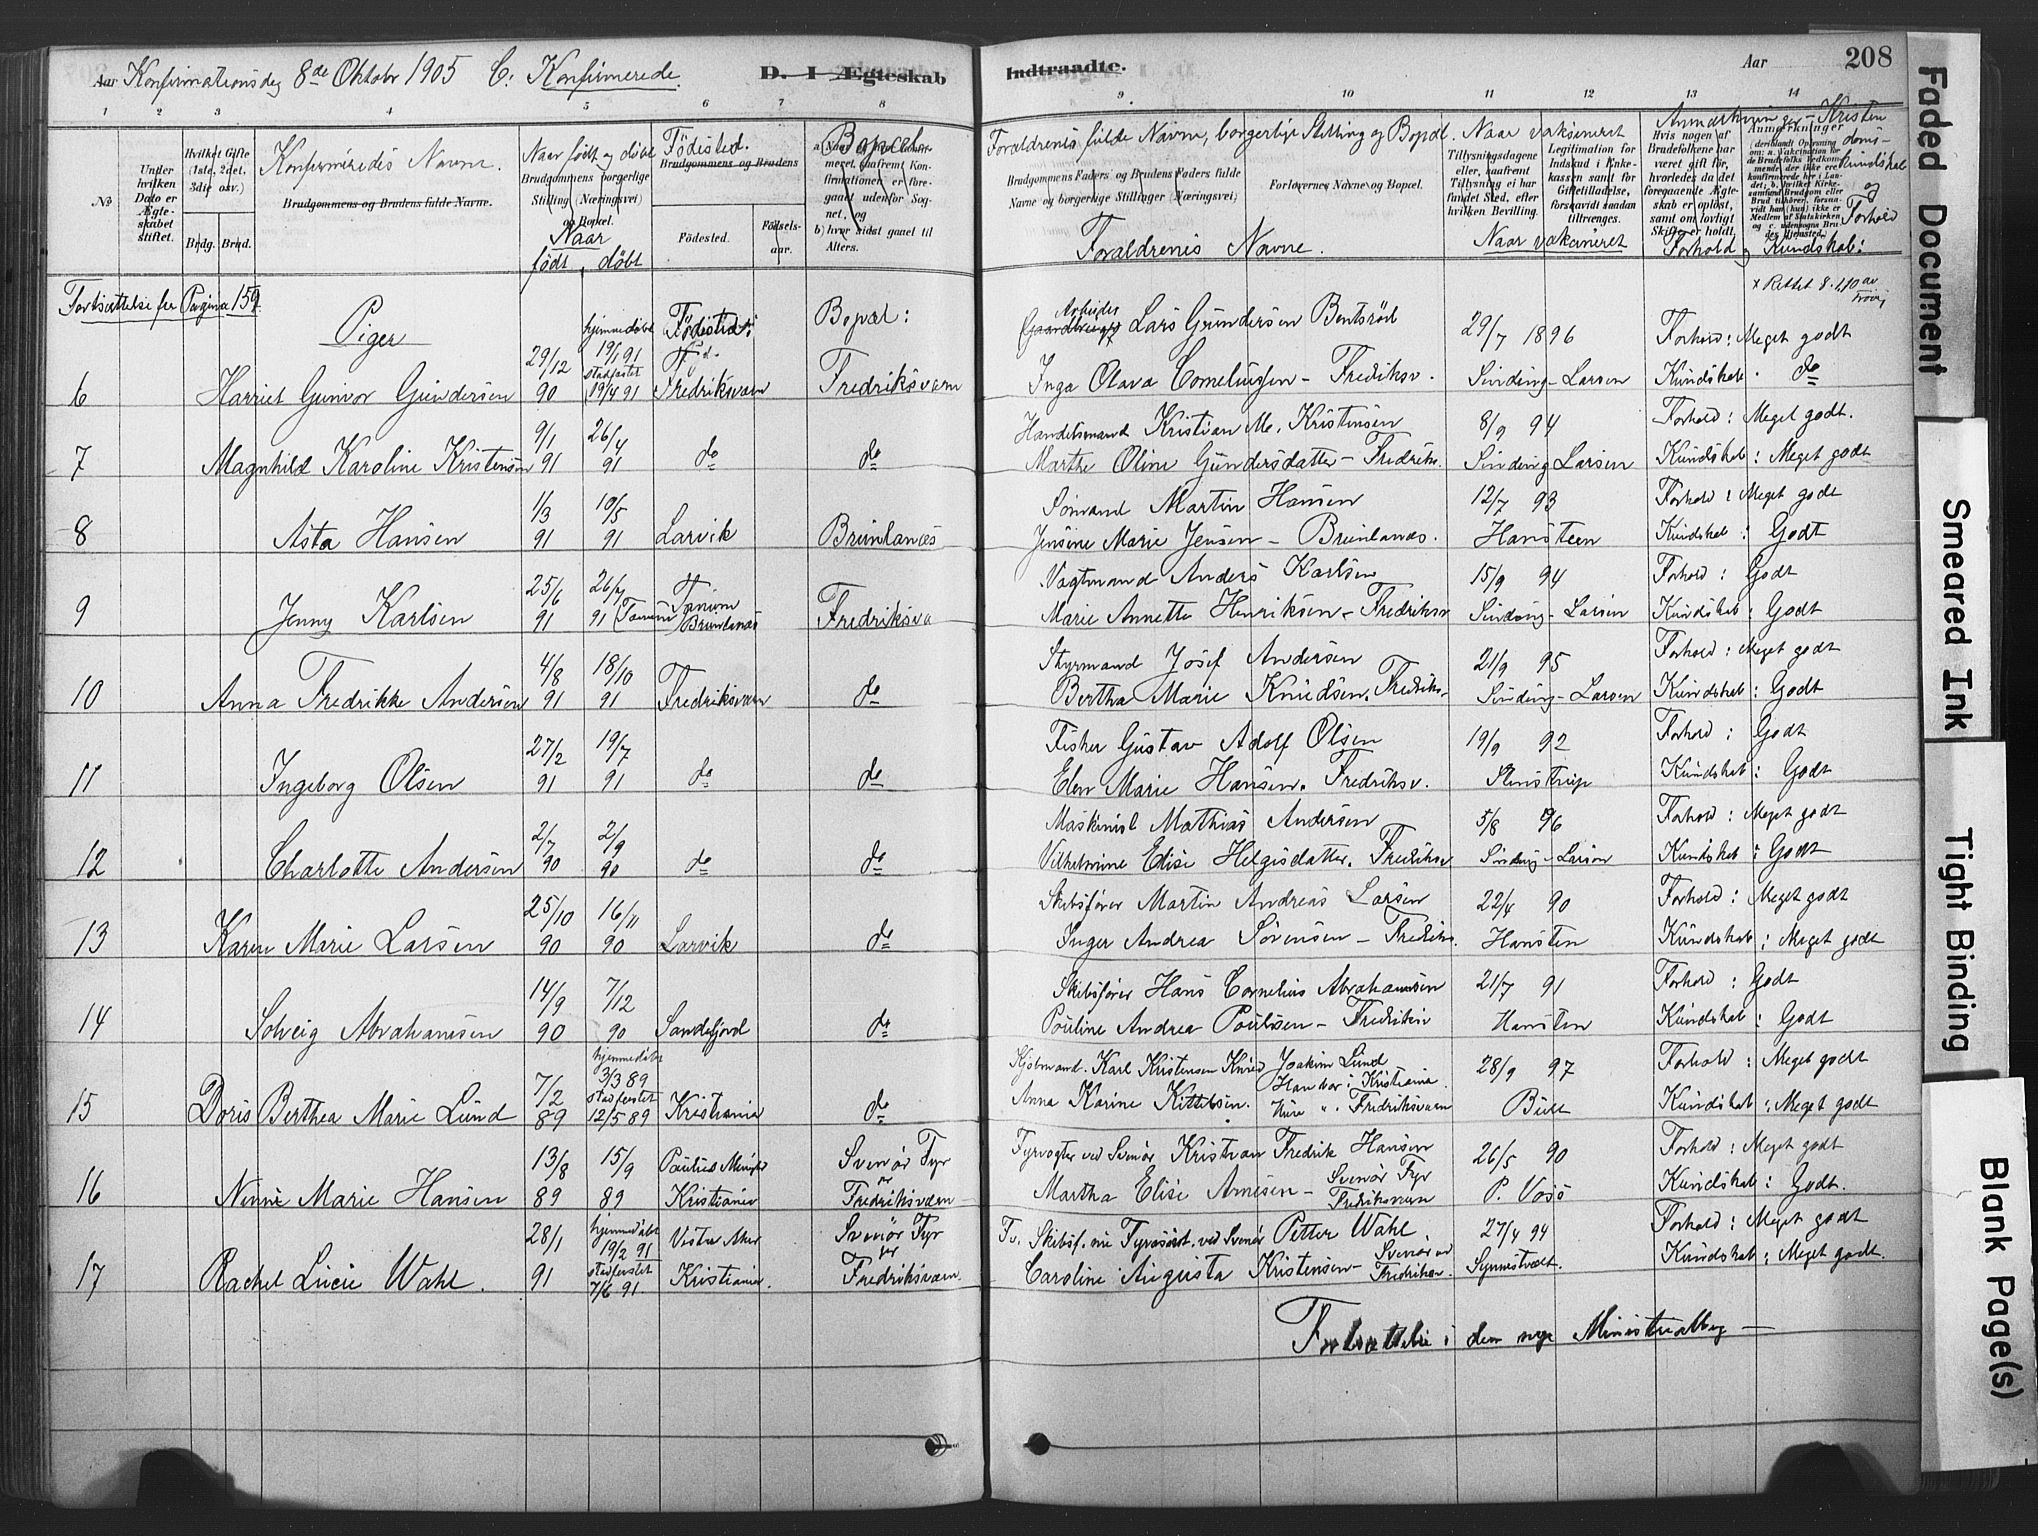 Aar Konfirmationsdag 8de Oktobr 1905 C. Konfirmerede. D. I Ægteskab
Indtraadte. Aar 208
1 2 3 4 5 6 7 8
9 10 11 12 13 14
No
Under hvilken Dato er Ægteskabet stiftet.
Hvilket Gifte (1ste, 2det, 3die osv.)
Brdg. Brud.
Konfirmeredes Navne.
Brudgommens og Brudens fulde Navne.
Naar født og døbt
Brudgommens borgerlige Stilling (Næringsvei) og Bopæl.
Naar
født, døbt
Fødested.
Brudgommens og Brudens
Födested. Födsels-aar.
Bopæl
b) hvor sidst gaaet til Alters.
Forældrenes fulde Navne, borgerlige Stilling og Bopæl.
Brudgommens Faders og Brudens Faders fulde Navne og borgerlige Stillinger (Næringsvei)
Forlovernes Navne og Bopæl.
Forældrenes Navne.
Naar vaksineret
Tillysningsdagene eller, naafremt Tillysning ei har fundet Sted, efter hvilken Bevilling.
Legitimation for Indskud i Enkekassen samt for Giftetilladelse, forsaavidt saadan tiltrænges.
Naar vaksineret
Hvis nogen af Brudefolkene har været gift før, hvorledes da det foregaaende Ægteskab er opløst, samt om lovligt Skifte er holdt.
Anmærkninger
Kristendoms-
Kundskab
og
Forhold
Forhold og Kundskab:
Fortsættelse fra Pagina 159
x Rettet 8.1.10 av
Piger
Fødested:
Bopæl:
6 Harriet Gunvor Gundersen 29/12 90 hjemmedøbt 19/1 91 stadfæstet 19/4 91 Fredriksværn Fredriksværn
Arbeider Lars Gundersen Bentsrød 29/7 1896 Forhold: Meget godt
Inga Olava Corneliussen - Fredriksv. Sinding-Larsen Kundskab. do
7 Magnhild Karoline Kristensen 9/1 91 26/4 91 do do
Handelsmand Kristian M. Kristensen 8/9 94 Forhold: Meget godt.
Marthe Oline Gundersdatter - Fredriks. Sinding Larsen Kundskab: Meget godt
8 Asta Hansen 1/3 91 10/5 91 Larvik Brunlanæs
Sömand Martin Hansen 12/7 93 Forhold: Meget godt
Jensine Marie Jensen - Brunlanæs. Hansteen Kundskab: Godt
9 Jenny Karlsen 25/6 91 26/7 91 Tanum Tanum Brunlanæs Fredriksvæ
Vagtmand Anders Karlsen 15/9 94 Forhold: Godt
Marie Annette Henriksen - Fredriksv Sinding-Larsen Kundskab: Godt
10 Anna Fredrikke Andersen 4/8 91 18/10 91 Fredriksværn do
Styrmand Josef Andersen 21/9 95 Forhold: Meget godt
Bertha Marie Knudsen. Fredriks. Sinding-Larsen Kundskab: Godt
11 Ingeborg Olsen 27/2 91 19/7 91 do do
Fisker Gustav Adolf Olsen 19/9 92 Forhold: Godt
Elen Marie Hansen. Fredriksv. Stenstrup Kundskab: Godt
12 Charlotte Andersen 2/7 90 2/9 90 do do
Maskinist Mathias Andersen 5/8 96 Forhold: Meget godt
Vilhelmine Elise Helgesdatter. Fredriksv Sinding-Larsen Kundskab: Godt
13 Karen Marie Larsen 25/10 90 16/11 90 Larvik do
Skibsfører Martin Andreas Larsen 22/4 90 Forhold: Meget godt
Inger Andrea Sørensen - Fredriks. Hansten Kundskab: Meget godt
14 Solveig Abrahamsen 14/9 90 7/12 90 Sandefjord do
Skibsfører Hans Cornelius Abrahamsen 21/7 91 Forhold: Godt
Pouline Andrea Poulsen - Fredriksv Hansten Kundskab: Godt
15 Doris Berthea Marie Lund 7/2 89 hjemmedøbt 3/3 89 stadfæstet 12/5 89 Kristiania do
Kjøbmand. Karl Kristensen Knud Joakim Lund Han bor i Kristiania. 28/9 97 Forhold: Meget godt
Anna Karine Kittelsen. Hun " . Fredriksværn Bull Kundskab: Meget godt
16 Ninne Marie Hansen 13/8 89 15/9 89 Paulus Menighed Kristiania Svenør Fyr pr Fredriksværn
Fyrvogter ved Svenør Kristian Fredrik Hansen 26/5 90 Forhold: Meget godt
Martha Elise Arnesen - Svenør Fyr Fredriksværn P. Voss Kundskab: Godt.
17 Rachel Lucie Wahl. 28/1 91 hjemmedøbt 19/2 91 stadfæstet 7/6 91. Vestre Aker Kristiania. Svenør Fyr pr Fredriksværn.
Fv. Skibsf. nu Fyrassist. ved Svenør Petter Wahl. 27/4 94 Forhold: Meget godt
Caroline Augusta Kristensen - Svenør ved Fredriksv. Synnestvedt. Kundskab: Meget godt.
Fortsættelse i den nye Ministerialbog —
Faded Document
Smeared Ink
Tight Binding
Blank Page(s)